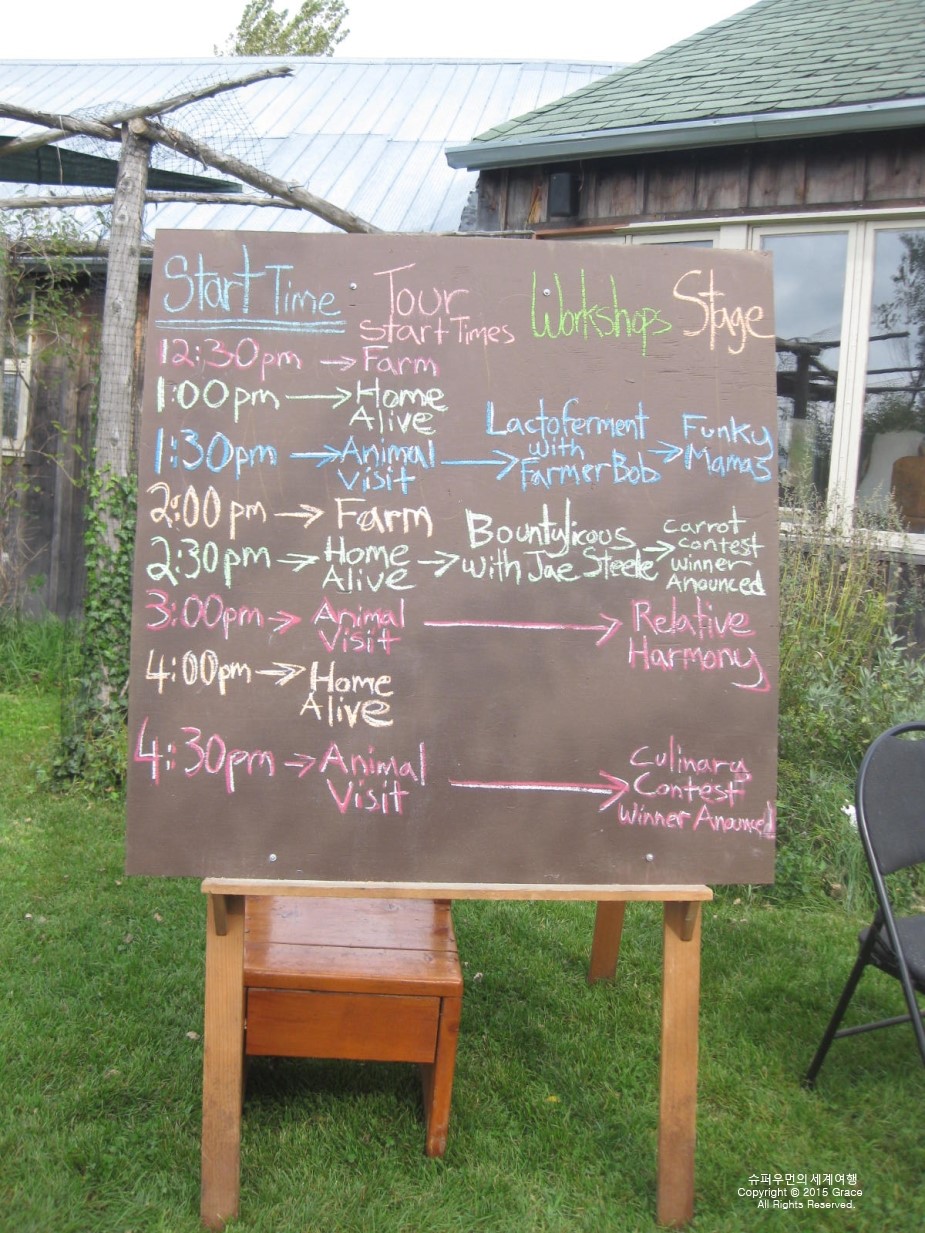 Start Time Tour Workshops Stage
Start Times
12:30pm → Farm
1:00pm → Home
Alive
1:30pm → Animal Visit → Lactoferment with Farmer Bob → Funky Mamas
2:00 pm → Farm
2:30pm → Home Alive → Bountylicous with Jae Steele → Carrot contest winner Anounced
3:00pm → Animal Visit → Relative Harmony
4:00pm → Home
Alive
4:30pm → Animal Visit → Culinary Contest Winner Anounced
슈퍼우먼의 세계여행
Copyright © 2015 Grace
All Rights Reserved.